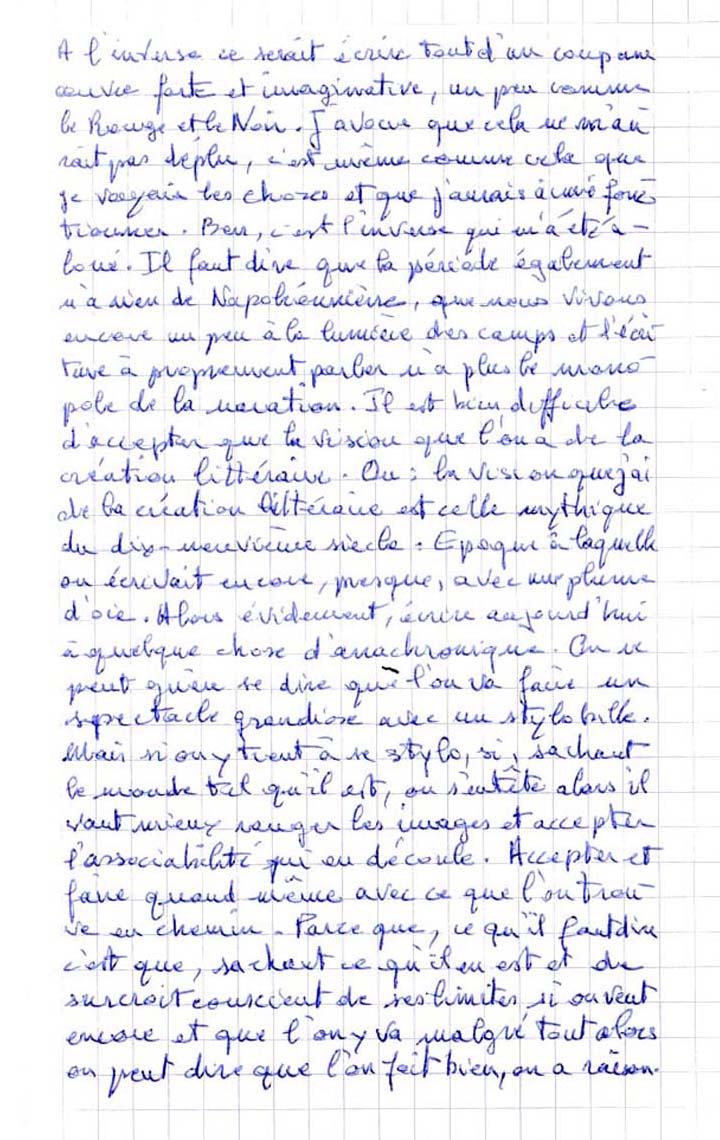 A l'inverse ce serait écrire tout d'un coup une
oeuvre forte et imaginative, un peu comme
le Rouge et le Noir. J'avoue que cela ne m'au
rait pas déplu, c'est même comme cela que
je voyais les choses et que j'aurais aimé fonc
tionner. Ben, c'est l'inverse qui m'a été a-
loué. Il faut dire que la période également
n'a rien de Napoléonnière, que nous vivons
encore un peu à la lumière des camps et l'écri
ture à proprement parler n'a plus le mono
pole de la narration. Il est bien difficile
d'accepter que la vision que l'on a de la
création littéraire. Ou : la vision que j'ai
de la création littéraire est celle mythique
du dix-neuvième siècle. Epoque à laquelle
on écrivait encore, presque, avec une plume
d'oie. Alors évidement, écrire aujourd'hui
a quelque chose d'anachronique. On ne
peut guère se dire que l'on va faire un
spectacle grandiose avec un stylo bille.
Mais si on y tient à se stylo, si, sachant
le monde tel qu'il est, on s'entête alors il
vaut mieux ranger les images et accepter
l'associabilité qui en découle. Accepter et
faire quand même avec ce que l'on trou
ve en chemin. Parce que, ce qu'il faut dire
c'est que, sachant ce qu'il en est et de
surcroit conscient de ses limites si on veut
encore et que l'on y va malgré tout alors
on peut dire que l'on fait bien, on a raison.